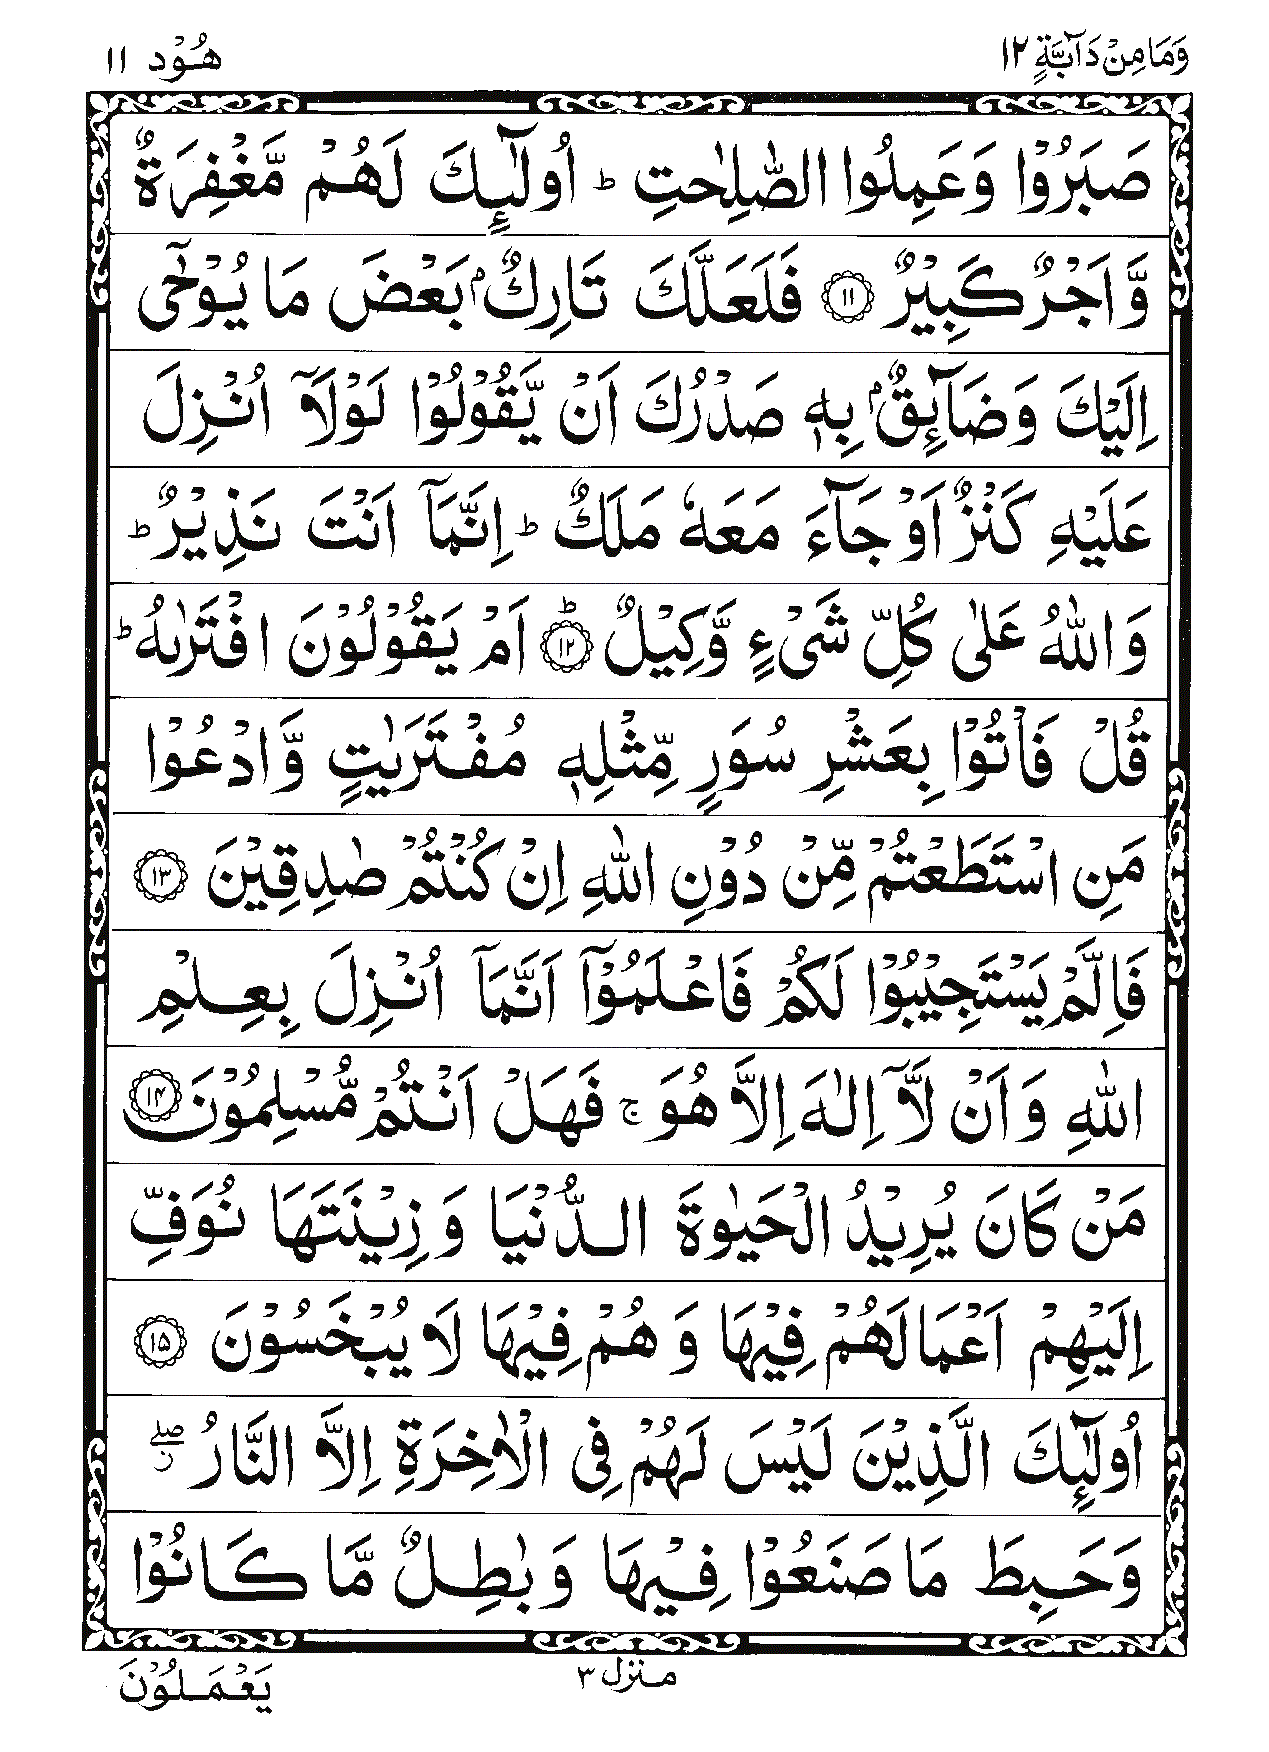 وَمَا مِنْ دَآبَّةٍ ١٢
هُوْد ١١
صَبَرُوْا وَعَمِلُوا الصّٰلِحٰتِ ؕ اُولٰٓئِكَ لَهُمْ مَّغْفِرَةٌ
وَّاَجْرٌ كَبِيْرٌ ١١ فَلَعَلَّكَ تَارِكٌۢ بَعْضَ مَا يُوْحٰٓى
اِلَيْكَ وَضَآئِقٌۢ بِهٖ صَدْرُكَ اَنْ يَّقُوْلُوْا لَوْلَاۤ اُنْزِلَ
عَلَيْهِ كَنْزٌ اَوْ جَآءَ مَعَهٗ مَلَكٌ ؕ اِنَّمَاۤ اَنْتَ نَذِيْرٌ ؕ
وَاللّٰهُ عَلٰى كُلِّ شَىْءٍ وَّكِيْلٌ ؕ ١٢ اَمْ يَقُوْلُوْنَ افْتَرٰىهُ ؕ
قُلْ فَاْتُوْا بِعَشْرِ سُوَرٍ مِّثْلِهٖ مُفْتَرَيٰتٍ وَّادْعُوْا
مَنِ اسْتَطَعْتُمْ مِّنْ دُوْنِ اللّٰهِ اِنْ كُنْتُمْ صٰدِقِيْنَ ١٣
فَاِلَّمْ يَسْتَجِيْبُوْا لَكُمْ فَاعْلَمُوْۤا اَنَّمَاۤ اُنْزِلَ بِعِلْمِ
اللّٰهِ وَ اَنْ لَّاۤ اِلٰهَ اِلَّا هُوَ ۚ فَهَلْ اَنْتُمْ مُّسْلِمُوْنَ ١٤
مَنْ كَانَ يُرِيْدُ الْحَيٰوةَ الدُّنْيَا وَ زِيْنَتَهَا نُوَفِّ
اِلَيْهِمْ اَعْمَالَهُمْ فِيْهَا وَ هُمْ فِيْهَا لَا يُبْخَسُوْنَ ١٥
اُولٰٓئِكَ الَّذِيْنَ لَيْسَ لَهُمْ فِى الْاٰخِرَةِ اِلَّا النَّارُ ۖ
وَحَبِطَ مَا صَنَعُوْا فِيْهَا وَ بٰطِلٌ مَّا كَانُوْا
منزل ٣
يَعْمَلُوْنَ